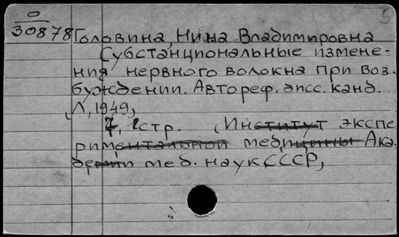 5
0
30878
Головина, Нина Владимировна
Субстанциональные измене-
ния нервного волокна при воз-
буждении. Автореф. дисс. канд.
Л, 1949,
7, 2стр. (Институт экспе
риментальной медицины Ака-
демии мед. наук СССР,